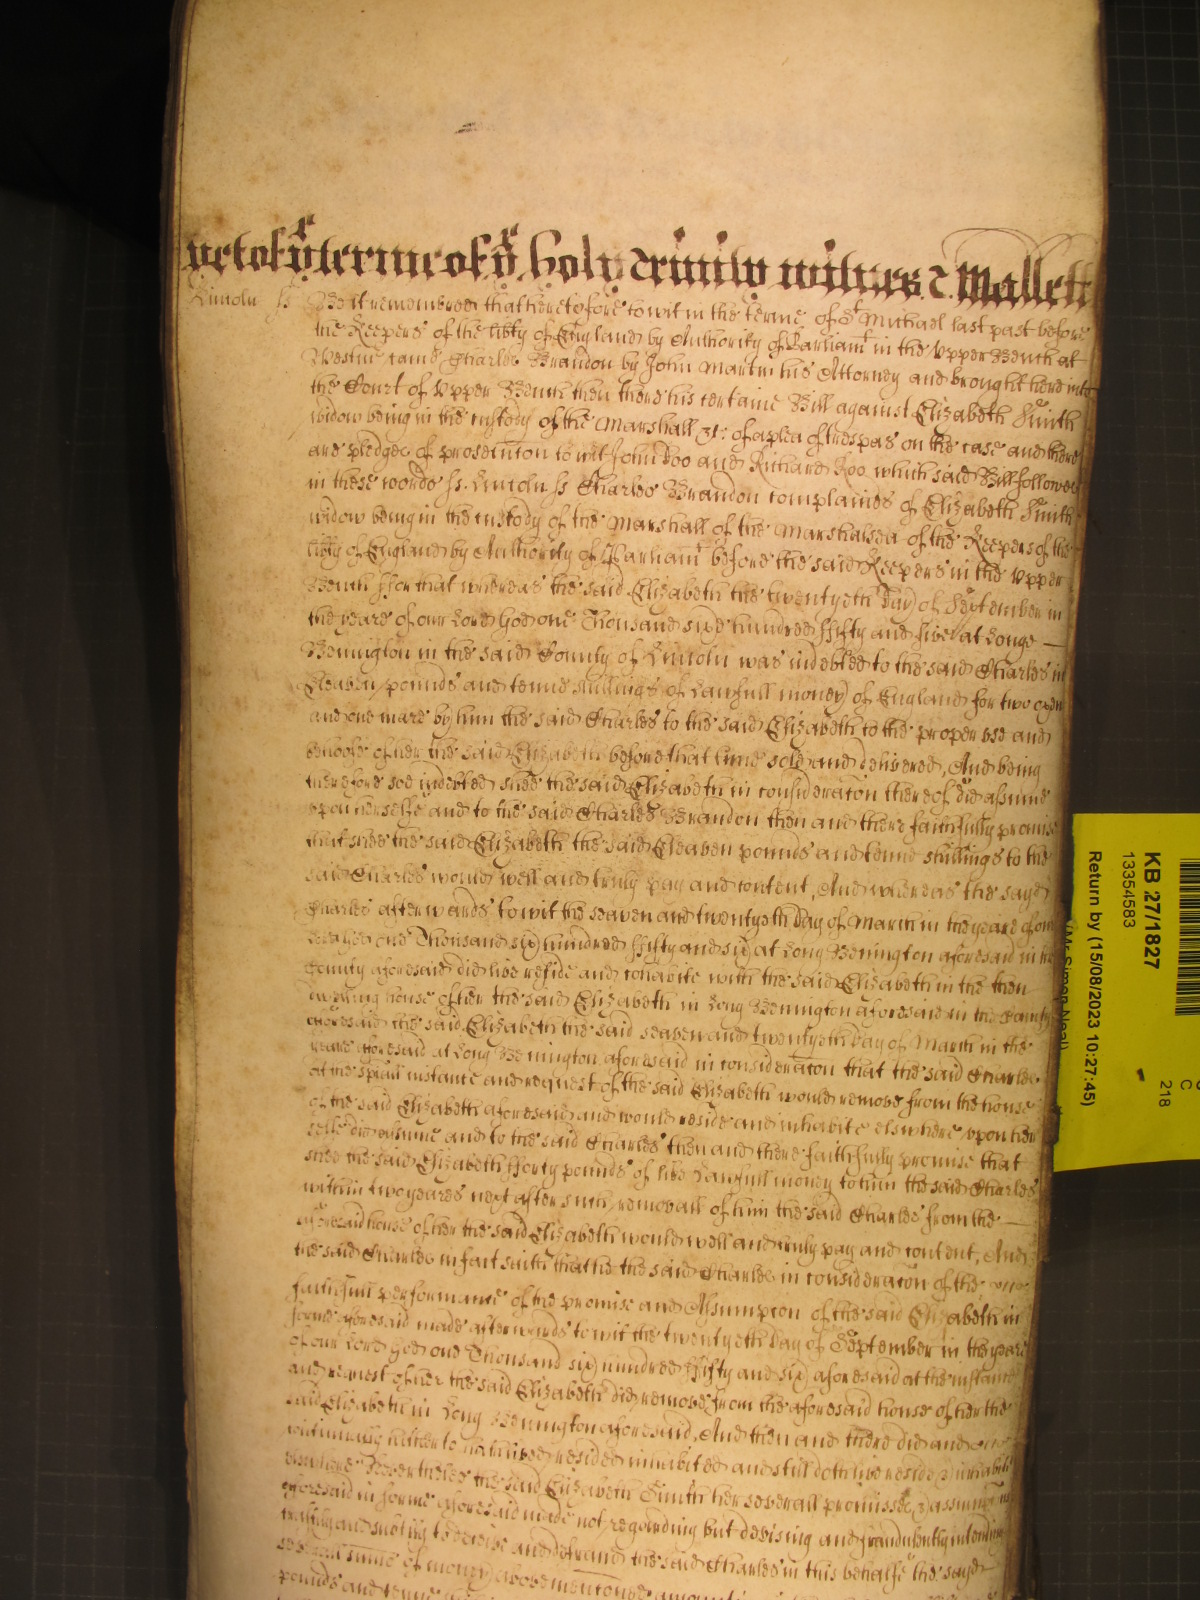 yet of ye terme of ye holy Trinity witnes &. Mallett
Lincoln ss Be it remembred that heretofore to wit in the terme of St Michael last past before
the Keepers of the libty of England by Authority of Parliamt in the Upper Bench at
Westmr came Charles Brandon by John Martin his Attorney and brought here into
the Court of Upper Bench then there his certaine Bill against Elizabeth Smith
widow being in the custody of the Marshall &c: of a plea of trespas on the case and there
are pledges of prosecution to wit John Doo and Richard Roo which said Bill followes
in these words ss. Lincoln ss Charles Brandon complaines of Elizabeth Smith
widow being in the custody of the Marshall of the Marshalsea of the Keepers of the
libty of England by Authority of Parliamt before the said Keepers in the Upper
Bench ffor that whereas the said Elizabeth the twentyeth day of September in
the yeare of our Lord God one Thousand six hundred ffifty and five at Longe
Benington in the said County of Lincoln was indebted to the said Charles in
Eleaven pounds and tenne shillings of Lawfull money of England for two oxen
and one mare by him the said Charles to the said Elizabeth to the proper use and
behoofe of her the said Elizabeth before that time sold and delivered, And being
therefore soe indebted shee the said Elizabeth in consideracon thereof did assume
upon herselfe and to the said Charles Brandon then and there faithfully promise
that shee the said Elizabeth the said Eleaven pounds and tenne shillings to the
said Charles would well and truly pay and content, And whereas the sayd
Charles afterwards to wit the seaven and twentyeth day of March in the yeare of our
Lord God one Thousand six hundred ffifty and six at Long Benington aforesaid in the
County aforesaid did live reside and cohabite with the said Elizabeth in the then
dwelling house of her the said Elizabeth in Long Benington aforesaid in the County
aforesaid the said Elizabeth the said seaven and twentyeth day of March in the
yeare aforesaid at Long Benington aforesaid in consideracon that the said Charles
at the spiall instance and request of the said Elizabeth would remove from the house
of the said Elizabeth aforesaid and would reside and inhabite elswhere upon her
selfe did assume and to the said Charles then and there faithfully promise that
shee the said Elizabeth fforty pounds of like Lawfull money to him the said Charles
within two yeares next after such removall of him the said Charles from the
aforesaid house of her the said Elizabeth would well and truly pay and content, And
the said Charles in fact saith that he the said Charles in consideracon of the
faithfull performance of the promise and Assumpcon of the said Elizabeth in
forme aforesaid made afterwards to wit the twentyeth day of September in the yeare
of our Lord God one Thousand six hundred ffifty and six aforesaid at the instance
and request of her the said Elizabeth did remove from the aforesaid house of her the
said Elizabeth in Long Benington aforesaid, And then and there did and
continually hitherto hath resided inhabited and still doth live reside & inhabit
elswhere Neverthelesse the said Elizabeth Smith her severall promisses & assumpcons
aforesaid in forme aforesaid made not regarding but devising and fraudulently intending
craftily and subtily to deceive and defraud the said Charles in this behalfe the sayd
severall summe of money above mentoned
pounds and tenne
KB 27/1827
13354583
Return by (15/08/2023 10:27:45)
(Mr Simon Neal)
C
218